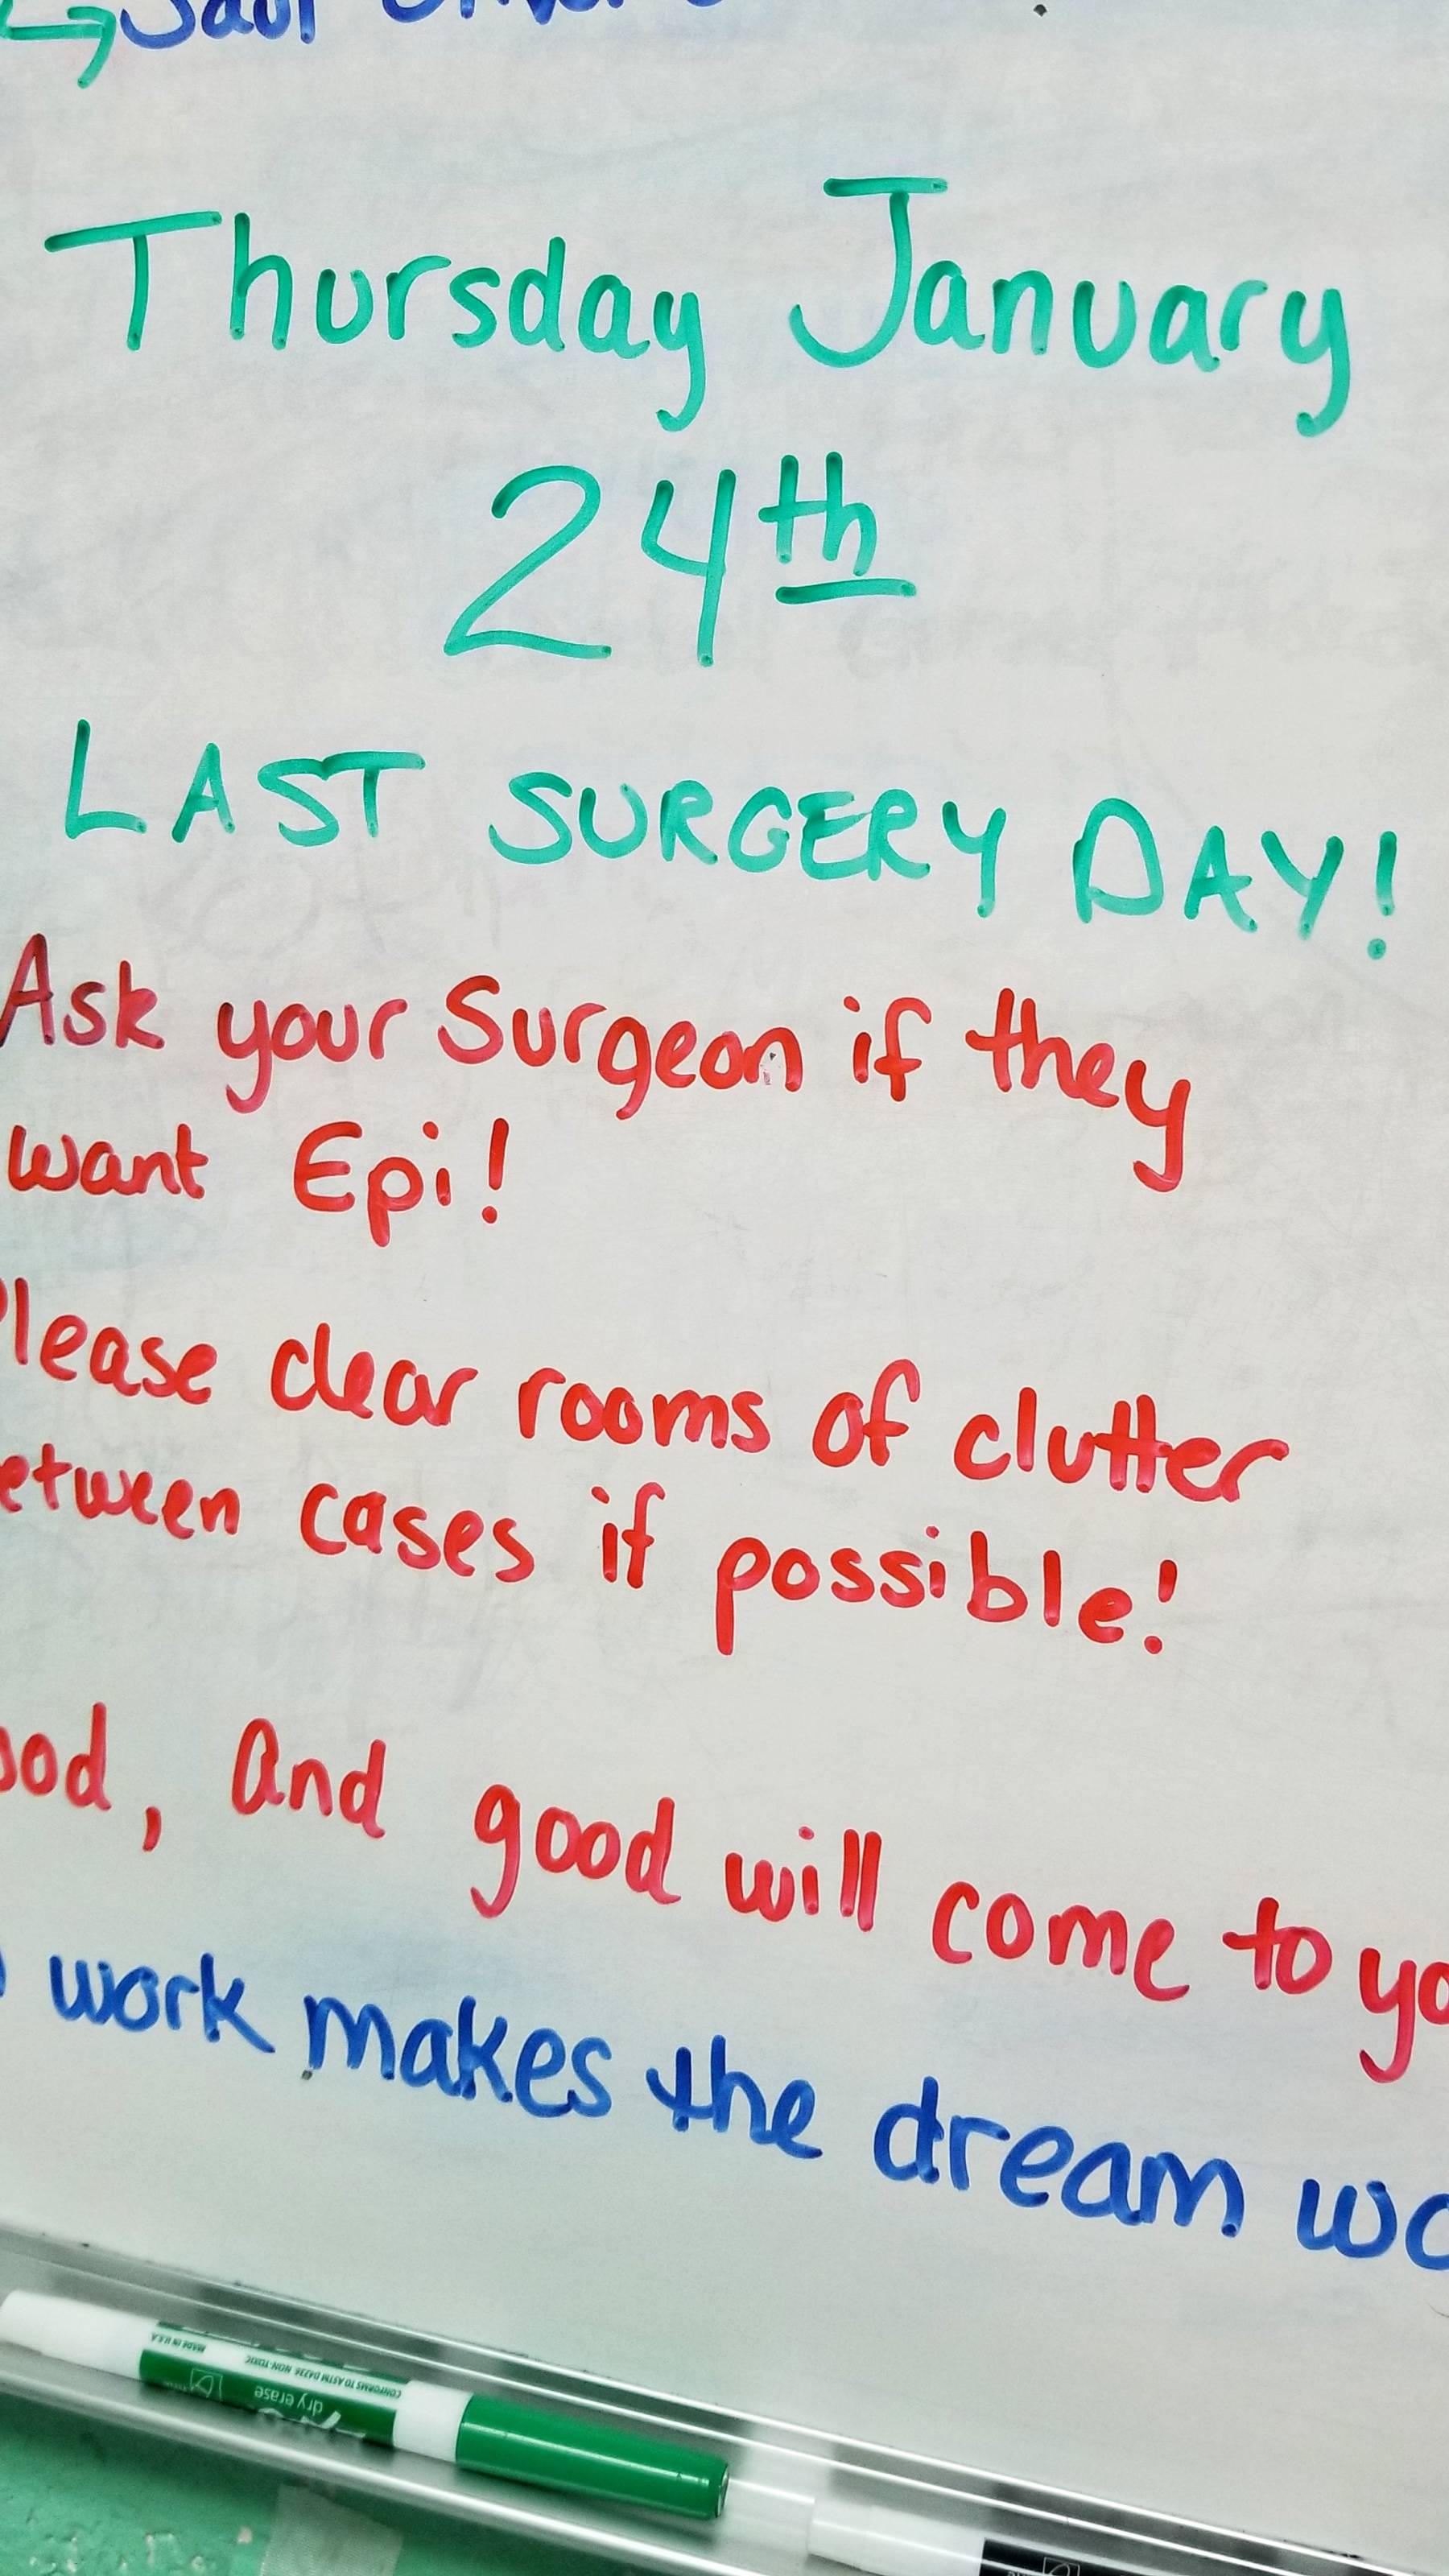 Thursday January
24th
LAST SURGERY DAY!
Ask your Surgeon if they
want Epi!
Please clear rooms of clutter
etween cases if possible!
ood, and good will come to yo
work makes the dream wo
MADE IN U.S.A.
CONFORMS TO ASTM D4236 NON-TOXIC
dry erase